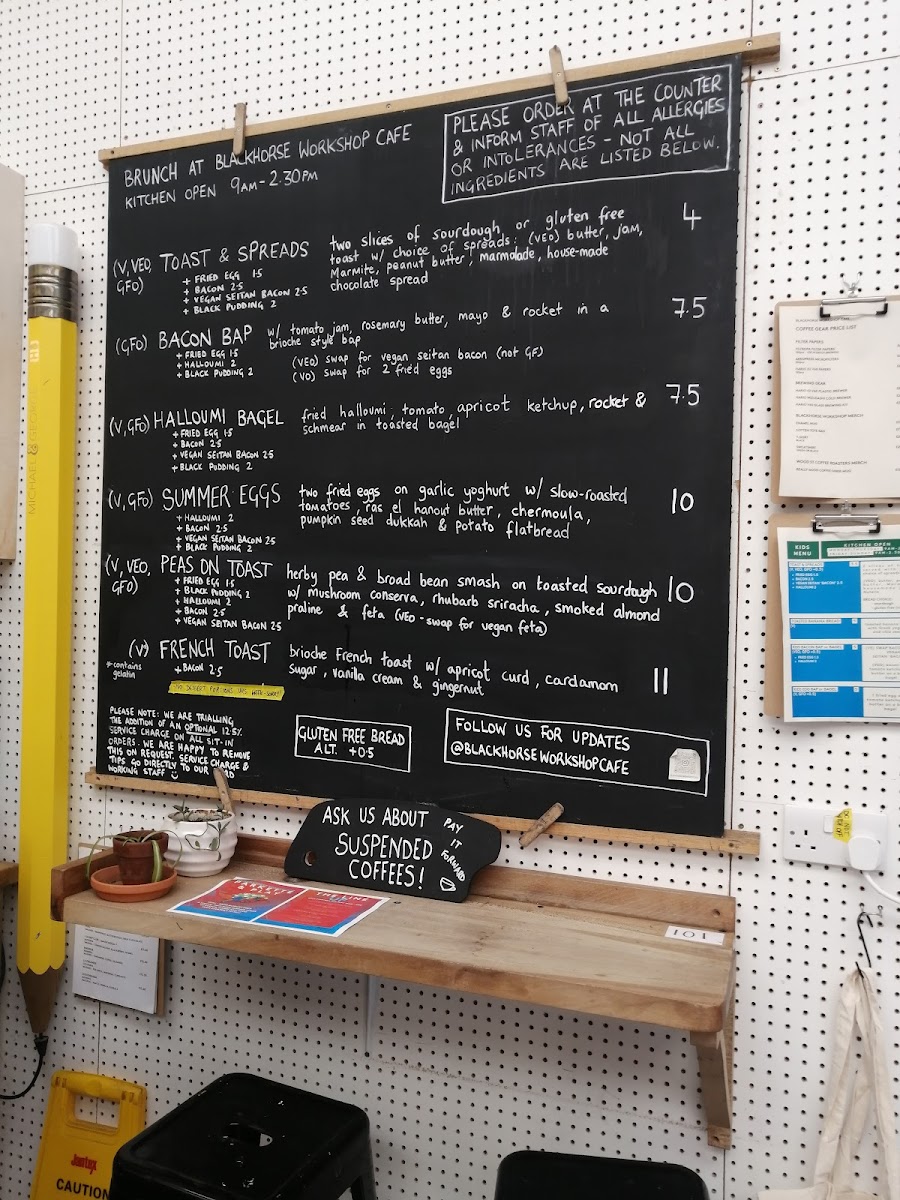 BRUNCH AT BLACKHORSE WORKSHOP CAFE
KITCHEN OPEN 9AM - 2.30PM
PLEASE ORDER AT THE COUNTER
& INFORM STAFF OF ALL ALLERGIES
OR INTOLERANCES - NOT ALL
INGREDIENTS ARE LISTED BELOW.
(V, VEO, GFO) TOAST & SPREADS
+ FRIED EGG 1.5
+ BACON 2.5
+ VEGAN SEITAN BACON 2.5
+ BLACK PUDDING 2
two slices of sourdough or gluten free
toast w/ choice of spreads: (VEO) butter, jam,
Marmite, peanut butter, marmalade, house-made
chocolate spread
4
(GFO) BACON BAP
+ FRIED EGG 1.5
+ HALLOUMI 2
+ BLACK PUDDING 2
w/ tomato jam, rosemary butter, mayo & rocket in a
brioche style bap
(VEO) swap for vegan seitan bacon (not GF)
(VO) swap for 2 fried eggs
7.5
(V, GFO) HALLOUMI BAGEL
+ FRIED EGG 1.5
+ BACON 2.5
+ VEGAN SEITAN BACON 2.5
+ BLACK PUDDING 2
fried halloumi, tomato, apricot ketchup, rocket &
schmear in toasted bagel
7.5
(V, GFO) SUMMER EGGS
+ HALLOUMI 2
+ BACON 2.5
+ VEGAN SEITAN BACON 2.5
+ BLACK PUDDING 2
two fried eggs on garlic yoghurt w/ slow-roasted
tomatoes, ras el hanout butter, chermoula,
pumpkin seed dukkah & potato flatbread
10
(V, VEO, GFO) PEAS ON TOAST
+ FRIED EGG 1.5
+ BLACK PUDDING 2
+ HALLOUMI 2
+ BACON 2.5
+ VEGAN SEITAN BACON 2.5
herby pea & broad bean smash on toasted sourdough
w/ mushroom conserva, rhubarb sriracha, smoked almond
praline & feta (VEO - swap for vegan feta)
10
(V*) FRENCH TOAST
*contains
gelatin
+ BACON 2.5
brioche French toast w/ apricot curd, cardamom
sugar, vanilla cream & gingernut
11
PLEASE NOTE: WE ARE TRIALLING
THE ADDITION OF AN OPTIONAL 12.5%
SERVICE CHARGE ON ALL SIT-IN
ORDERS. WE ARE HAPPY TO REMOVE
THIS ON REQUEST. SERVICE CHARGE &
TIPS GO DIRECTLY TO OUR
WORKING STAFF
GLUTEN FREE BREAD
ALT. +0.5
FOLLOW US FOR UPDATES
@BLACKHORSEWORKSHOPCAFE
ASK US ABOUT
SUSPENDED
COFFEES!
PAY
IT
FORWARD
101
COFFEE GEAR PRICE LIST
FILTER PAPERS
BREWING GEAR
BLACKHORSE WORKSHOP MERCH
KIDS
MENU
KITCHEN OPEN
MICHAEL &
Jantex
CAUTION